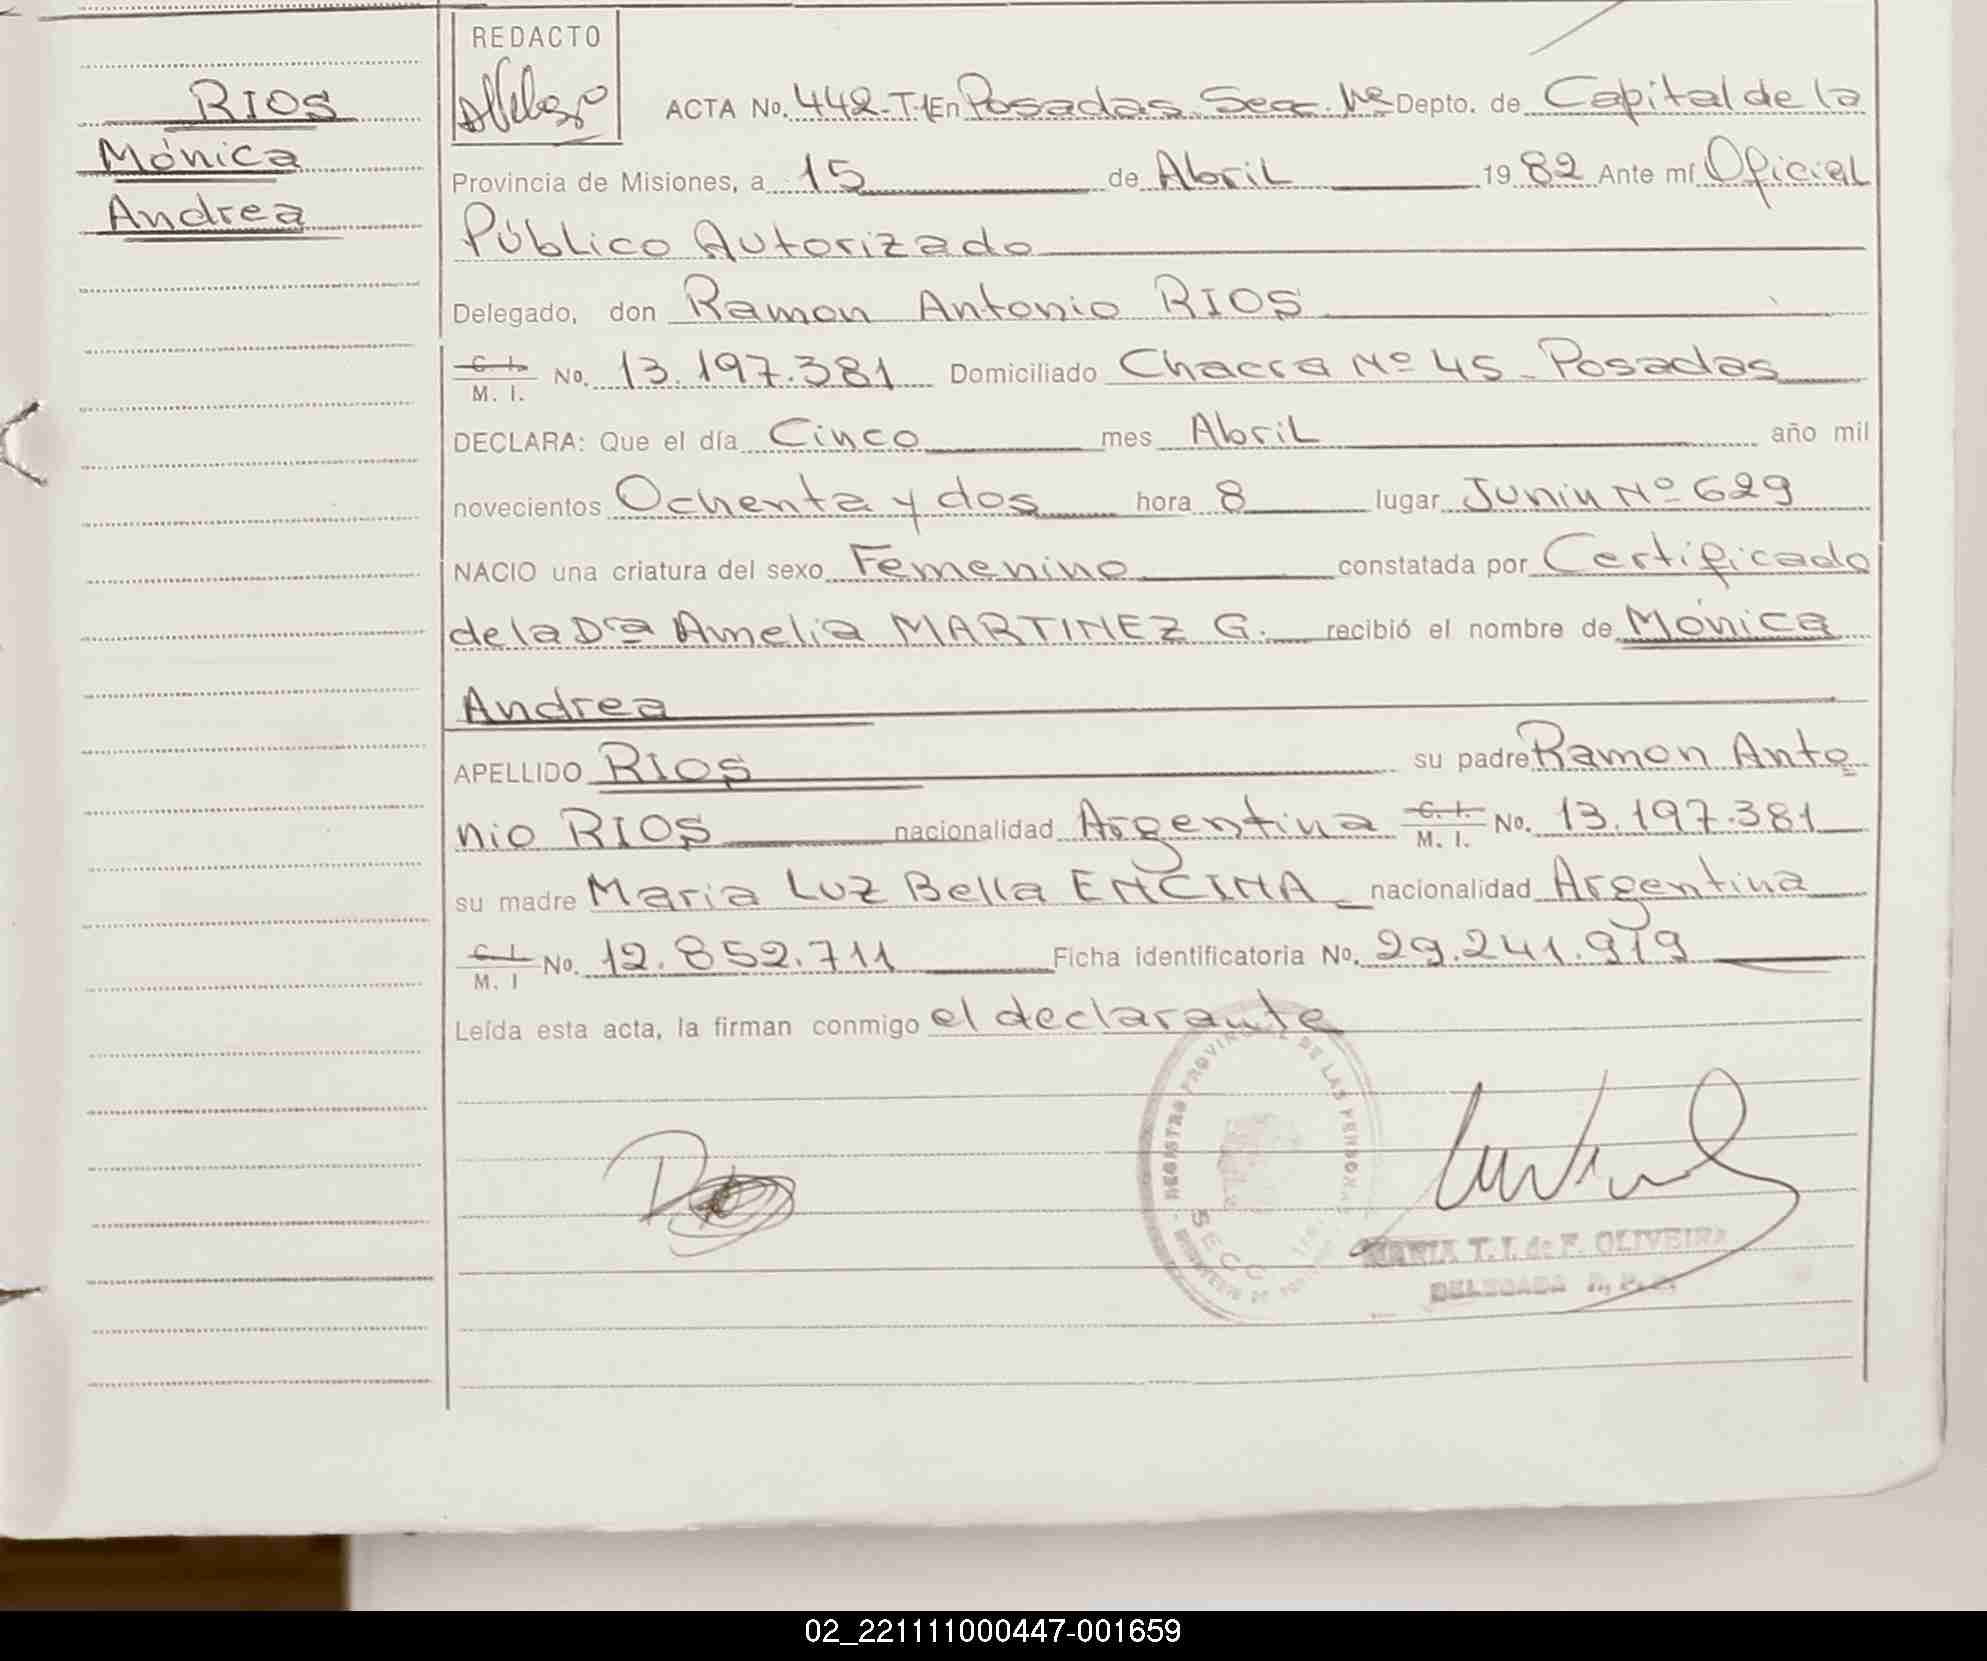 RIOS
Mónica
Andrea
REDACTO
ACTA No. 442-T-1 En Posadas Secc. 1ra Depto. de Capital de la
Provincia de Misiones, a 15 de Abril 1982 Ante mí Oficial
Público Autorizado
Delegado, don Ramon Antonio RIOS
C. I. M. I. No. 13.197.381 Domiciliado Chacra Nº 45 - Posadas
DECLARA: Que el día Cinco mes Abril año mil
novecientos Ochenta y dos hora 8 lugar Junin Nº 629
NACIO una criatura del sexo Femenino constatada por Certificado
de la Dra Amelia MARTINEZ G. recibió el nombre de Mónica
Andrea
APELLIDO RIOS su padre Ramon Anto
nio RIOS nacionalidad Argentina C. I. M. I. No. 13.197.381
su madre Maria Luz Bella ENCINA nacionalidad Argentina
C. I. M. I No. 12.852.711 Ficha identificatoria No. 29.241.919
Leída esta acta, la firman conmigo el declarante
REGISTRO PROVINCIAL DE LAS PERSONAS
SECC
MARIA T. I. de F. OLIVEIRA
DELEGADA R. P. P.
02_221111000447-001659